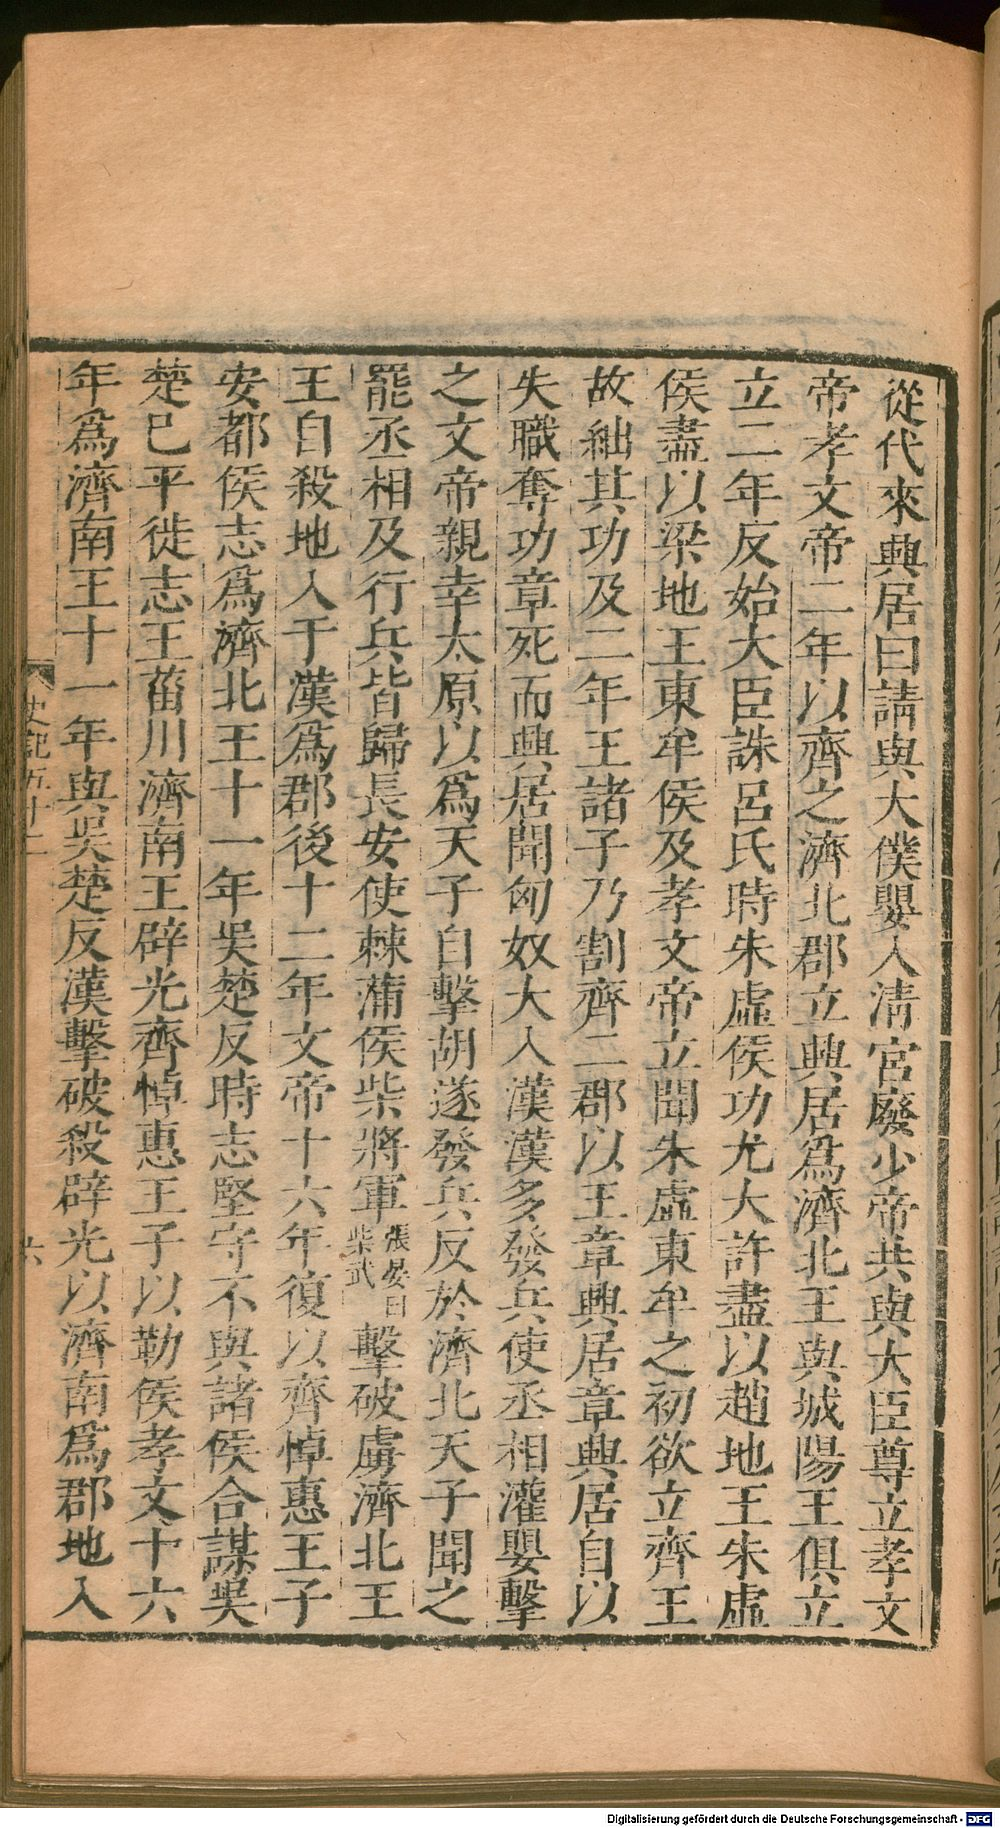 從代來興居曰請與大僕嬰入清宮廢少帝共與大臣尊立孝文
帝孝文帝二年以齊之濟北郡立興居爲濟北王與城陽王俱立
立二年反始大臣誅呂氏時朱虛侯功尤大許盡以趙地王朱虛
侯盡以梁地王東牟侯及孝文帝立聞朱虛東牟之初欲立齊王
故絀其功及二年王諸子乃割齊二郡以王章興居章興居自以
失職奪功章死而興居聞匈奴大入漢漢多發兵使丞相灌嬰擊
之文帝親幸太原以爲天子自擊胡遂發兵反於濟北天子聞之
罷丞相及行兵皆歸長安使棘蒲侯柴將軍張晏曰柴武擊破虜濟北王
王自殺地入于漢爲郡後十二年文帝十六年復以齊悼惠王子
安都侯志爲濟北王十一年吳楚反時志堅守不與諸侯合謀吳
楚已平徙志王菑川濟南王辟光齊悼惠王子以勒侯孝文十六
年爲濟南王十一年與吳楚反漢擊破殺辟光以濟南爲郡地入
史記五十二
六
Digitalisierung gefördert durch die Deutsche Forschungsgemeinschaft - DFG